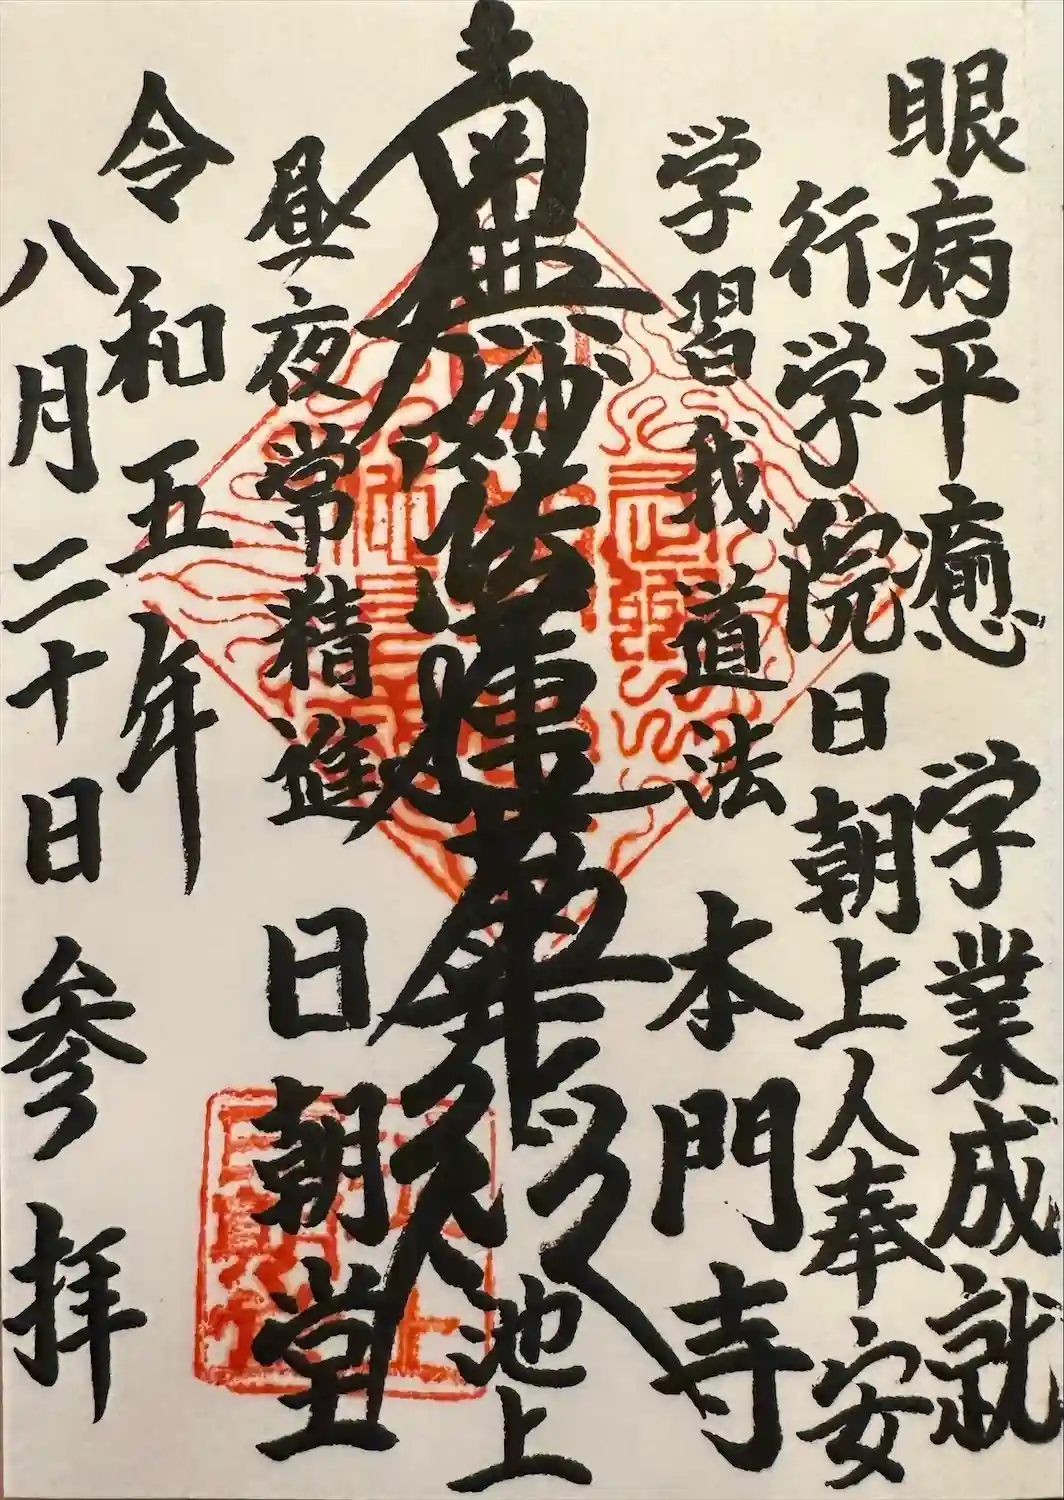 眼病平癒 学業成就
行学院日朝上人奉安
学習我道法 本門寺
南無妙法蓮華経
池上
昼夜常精進 日朝堂
令和五年
八月二十日参拝